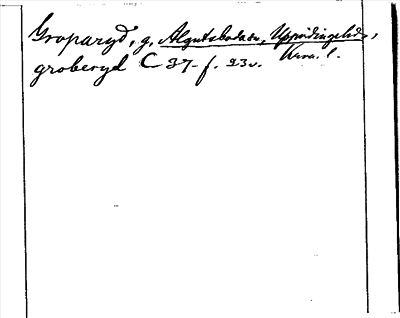 Groparyd, g. Algutsboda sn, Uppvidinge hd,
Kron. l.
groberyd C 37- f. 23v.